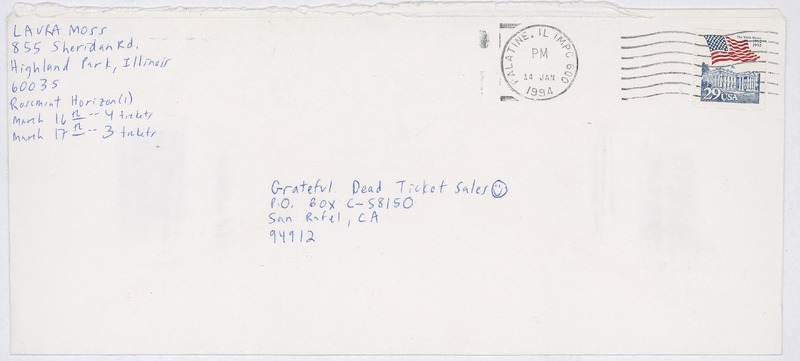 LAURA MOSS
855 Sheridan Rd.
Highland Park, Illinois
60035
Rosemont Horizon(1)
March 16th -- 4 tickets
March 17th -- 3 tickets
PALATINE, IL IMPC 600
PM
14 JAN
1994
The White House
1792 1992
29 USA
Grateful Dead Ticket Sales
P.O. BOX C-S8150
San Rafel, CA
94912